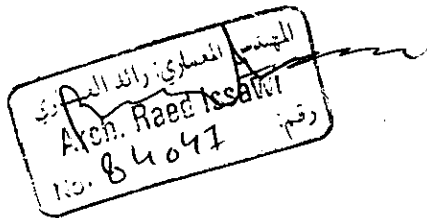 المهندس المعماري: رائد العيساوي
Arch. Raed Issawi
No. 84047 رقم: